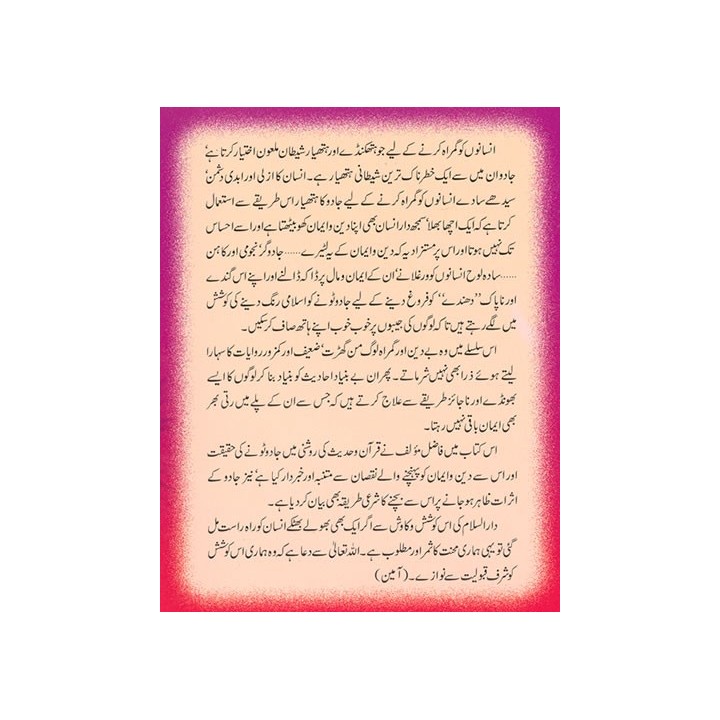 انسانوں کو گمراہ کرنے کے لیے جو ہتھکنڈے اور ہتھیار شیطان ملعون اختیار کرتا ہے'
جادو ان میں سے ایک خطرناک ترین شیطانی ہتھیار ہے۔ انسان کا ازلی اور ابدی دشمن'
سیدھے سادے انسانوں کو گمراہ کرنے کے لیے جادو کا ہتھیار اس طریقے سے استعمال
کرتا ہے کہ ایک اچھا بھلا' سمجھ دار انسان بھی اپنا دین و ایمان کھو بیٹھتا ہے اور اسے احساس
تک نہیں ہوتا اور اس پر مستزاد یہ کہ دین و ایمان کے یہ لٹیرے...... جادوگر' نجومی اور کاہن
...... سادہ لوح انسانوں کو ورغلانے' ان کے ایمان و مال پر ڈاکہ ڈالنے اور اپنے اس گندے
اور ناپاک ''دھندے'' کو فروغ دینے کے لیے جادو ٹونے کو اسلامی رنگ دینے کی کوشش
میں لگے رہتے ہیں تاکہ لوگوں کی جیبوں پر خوب خوب اپنے ہاتھ صاف کر سکیں۔
اس سلسلے میں وہ بے دین اور گمراہ لوگ من گھڑت' ضعیف اور کمزور روایات کا سہارا
لیتے ہوئے ذرا بھی نہیں شرماتے۔ پھر ان بے بنیاد احادیث کو بنیاد بنا کر لوگوں کا ایسے
بھونڈے اور ناجائز طریقے سے علاج کرتے ہیں کہ جس سے ان کے پلے میں رتی بھر
بھی ایمان باقی نہیں رہتا۔
اس کتاب میں فاضل مؤلف نے قرآن و حدیث کی روشنی میں جادو ٹونے کی حقیقت
اور اس سے دین و ایمان کو پہنچنے والے نقصان سے متنبہ اور خبردار کیا ہے' نیز جادو کے
اثرات ظاہر ہو جانے پر اس سے بچنے کا شرعی طریقہ بھی بیان کر دیا ہے۔
دارالسلام کی اس کوشش و کاوش سے اگر ایک بھی بھولے بھٹکے انسان کو راہ راست مل
گئی تو یہی ہماری محنت کا ثمر اور مطلوب ہے۔ اللہ تعالیٰ سے دعا ہے کہ وہ ہماری اس کوشش
کو شرف قبولیت سے نوازے۔ (آمین)